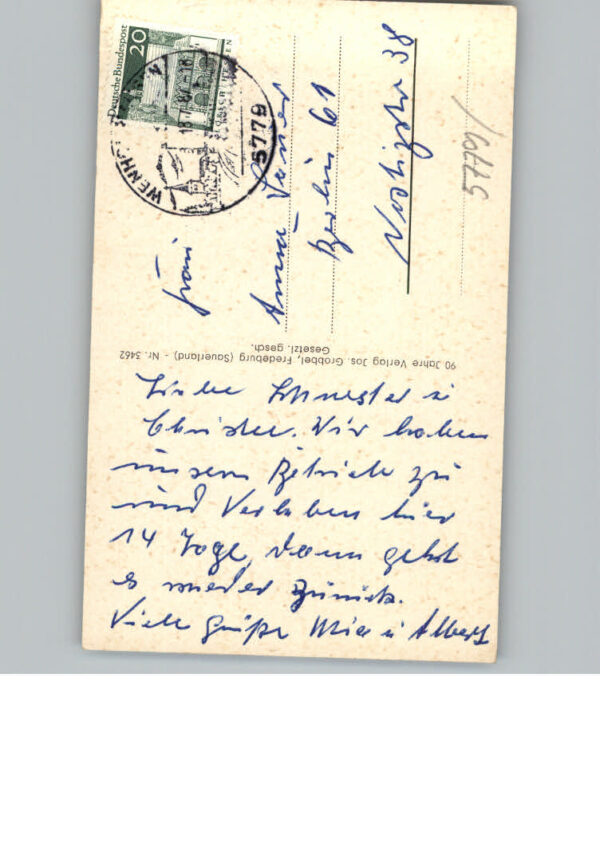 Deutsche Bundespost
20
5779
Frau
Anna
Berlin 61
Nostizstr 38
57791
90 Jahre Verlag Jos. Grobbel, Fredeburg (Sauerland) - Nr. 3462
Gesetzl. gesch.
Liebe Schwester u
Wir haben
unsern Betrieb zu
und Verleben hier
14 Tage, dann geht
es wieder zurück.
Viele Grüße Mia u Albert